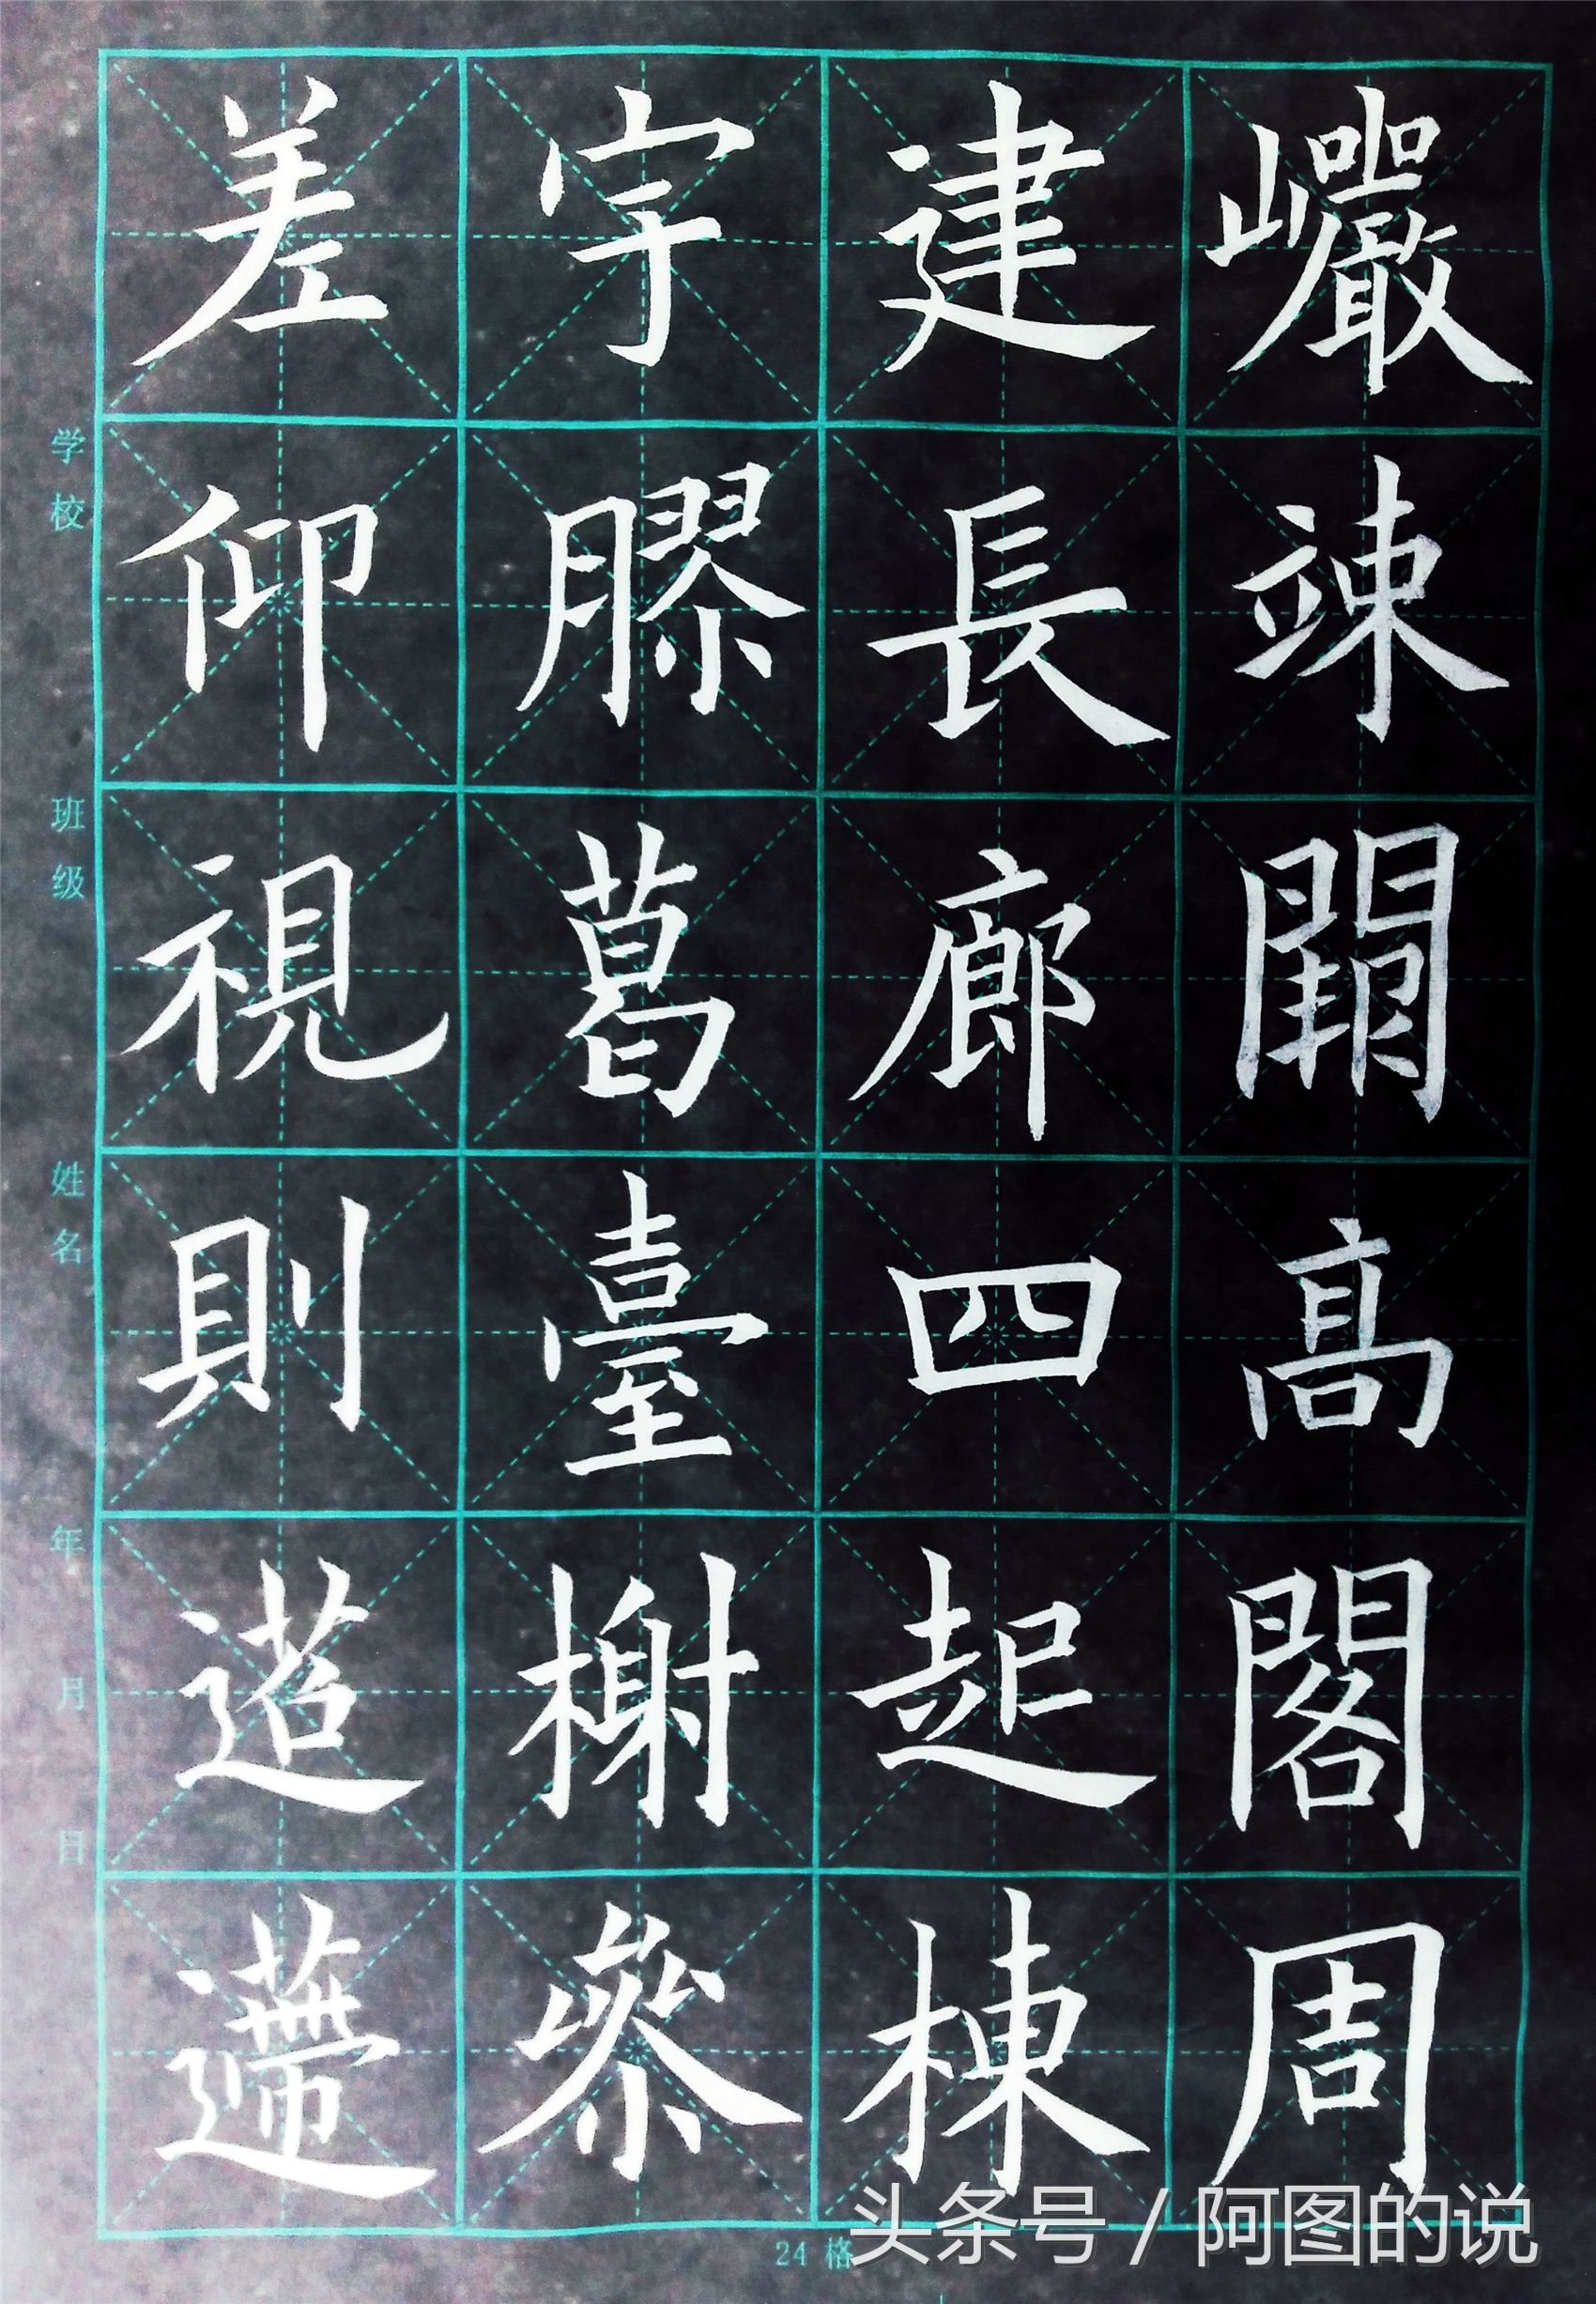 巖竦闕高閣周
建長廊四起棟
宇膠葛臺榭參
差仰視則迢遰
学校 班级 姓名 年 月 日
24 格
头条号 / 阿图的说